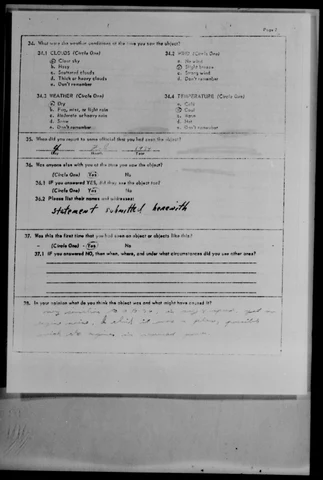 Page 7
34. What were the weather conditions at the time you saw the object?
34.1 CLOUDS (Circle One) 34.2 WIND (Circle One)
a. Clear sky a. No wind
b. Hazy b. Slight breeze
c. Scattered clouds c. Strong wind
d. Thick or heavy clouds d. Don't remember
e. Don't remember
34.3 WEATHER (Circle One) 34.4 TEMPERATURE (Circle One)
a. Dry a. Cold
b. Fog, mist, or light rain b. Cool
c. Moderate or heavy rain c. Warm
d. Snow d. Hot
e. Don't remember e. Don't remember
35. When did you report to some official that you had seen the object?
Day Month Year
36. Was anyone else with you at the time you saw the object?
(Circle One) Yes No
36.1 IF you answered YES, did they see the object too?
(Circle One) Yes No
36.2 Please list their names and addresses:
statement submitted herewith
37. Was this the first time that you had seen an object or objects like this?
(Circle One) Yes No
37.1 IF you answered NO, then when, where, and under what circumstances did you see other ones?
38. In your opinion what do you think the object was and what might have caused it?